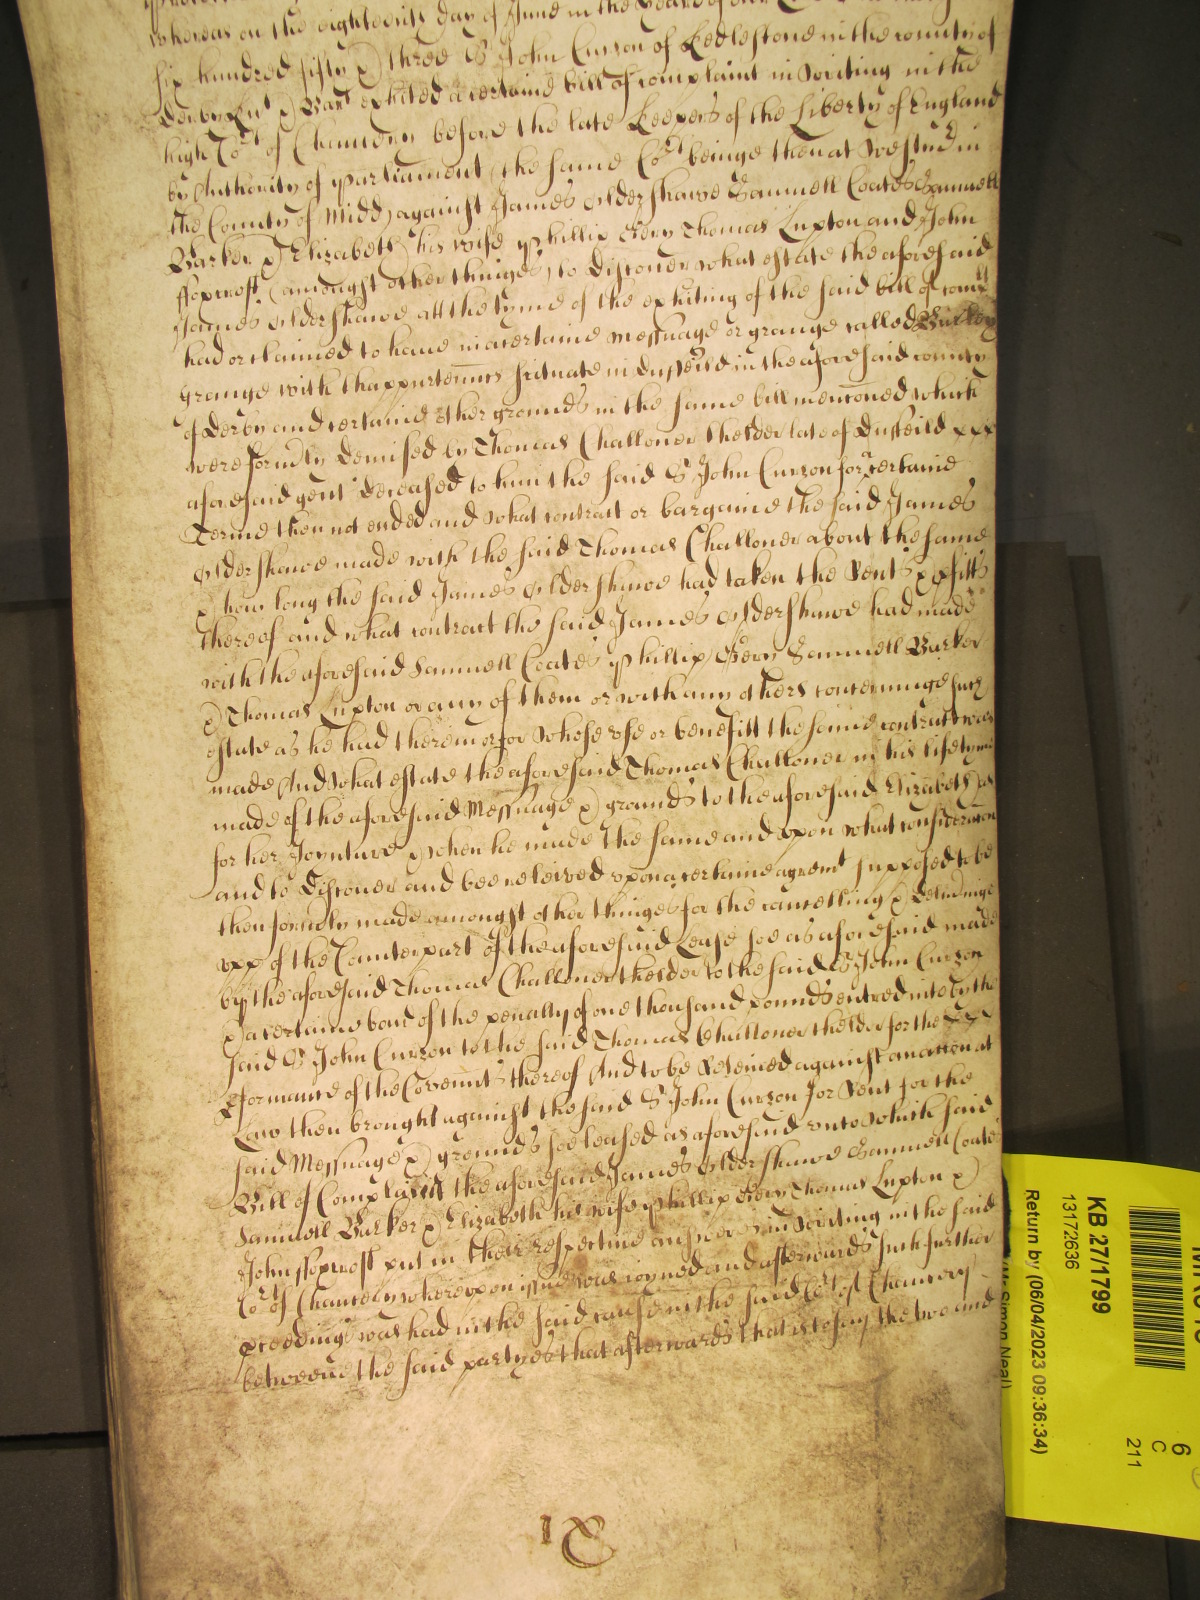 whereas on the eighteenth day of June in the yeare of our
six hundred fifty & three Sr John Curzon of Kedlestone in the County of
Derby Knt & Bart exhited a certaine bill of complaint in writing in the
high Cort of Chancery before the late Keepers of the Liberty of England
by Authority of Parliament (the same Cort beinge then at Westmr in
the County of Midd) against James Oldershawe Samuell Coates Samuell
Barker & Elizabeth his wife Phillip Thomas Lupton and John
ffoxcroft (amongst other thinges) to discover what estate the aforesaid
James Oldershawe att the tyme of the exhiting of the said bill of complt
had or claimed to have in a certaine messuage or grange called
grange with thappurtennces scituate in Duffeild in the aforesaid county
of Derby and certaine other grounds in the same bill menconed which
were formly demised by Thomas Challoner thelder late of Duffeild xxx
aforesaid gent deceased to him the said Sr John Curzon for a certaine
Terme then not ended and what contract or bargaine the said James
Oldershawe made with the said Thomas Challoner about the same
& how long the said James Oldershawe had taken the Rents & pfitts
thereof and what contract the said James Oldershawe had made
with the aforesaid Samuell Coates Phillip Samuell Barker
& Thomas Lupton or any of them or with any others concerninge such
estate as he had therein or for whose use or benefitt the same contract was
made And what estate the aforesaid Thomas Challoner in his lifetyme
made of the aforesaid Messuage & grounds to the aforesaid Elizabeth
for her Joynture & when he made the same and upon what consideracon
and to discover and bee releived upon a certaine agreemt supposed to be
then formly made amongst other thinges for the cancelling & delivinge
upp of the Counterpart of the aforesaid Lease soe as aforesaid made
by the aforesaid Thomas Challoner thelder to the said Sr John Curzon
& a certaine bond of the penalty of one thousand pounds entred into by the
said Sr John Curzon to the said Thomas Challoner thelder for the xxx
pformance of the Covennts thereof And to be releived against an accon at
Law then brought against the said Sr John Curzon for Rent for the
said Messuage & grounds soe leased as aforesaid unto which said
Bill of Complaint the aforesaid James Oldershawe Samuell Coates
Samuell Barker & Elizabeth his wife Phillip Thomas Lupton &
John ffoxcroft put in their respective answers in writing in the said
Cort of Chancery whereupon issue was joyned and afterwards such further
proceedings was had in the said cause in the said Cort of Chancery
betweene the said partyes that afterwards that is to say the two and
KB 27/1799
13172636
Return by (06/04/2023 09:36:34)
6
C
211